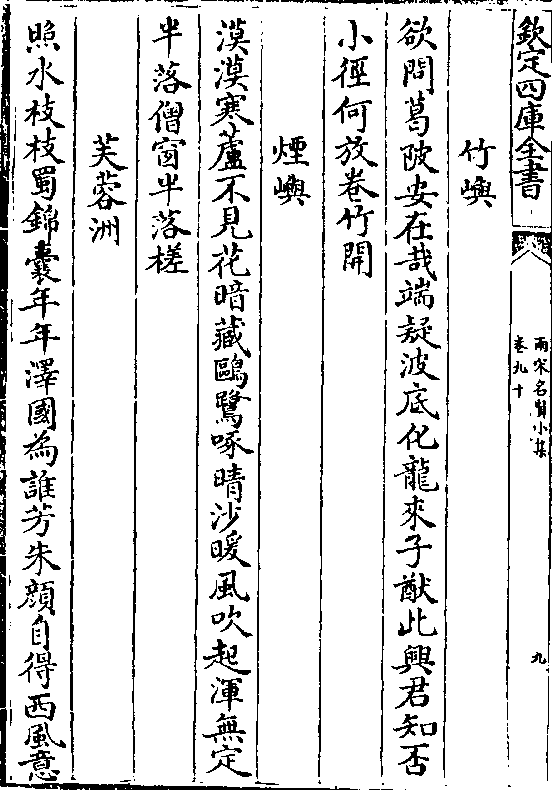 欽定四庫全書
兩宋名賢小集
卷九十
九
竹嶼
欲問葛陂安在哉端疑波底化龍來子猷此興君知否
小徑何放卷竹開
煙嶼
漠漠寒蘆不見花暗藏鷗鷺啄晴沙暖風吹起渾無定
半落僧窗半落槎
芙蓉洲
照水枝枝蜀錦囊年年澤國為誰芳朱顔自得西風意